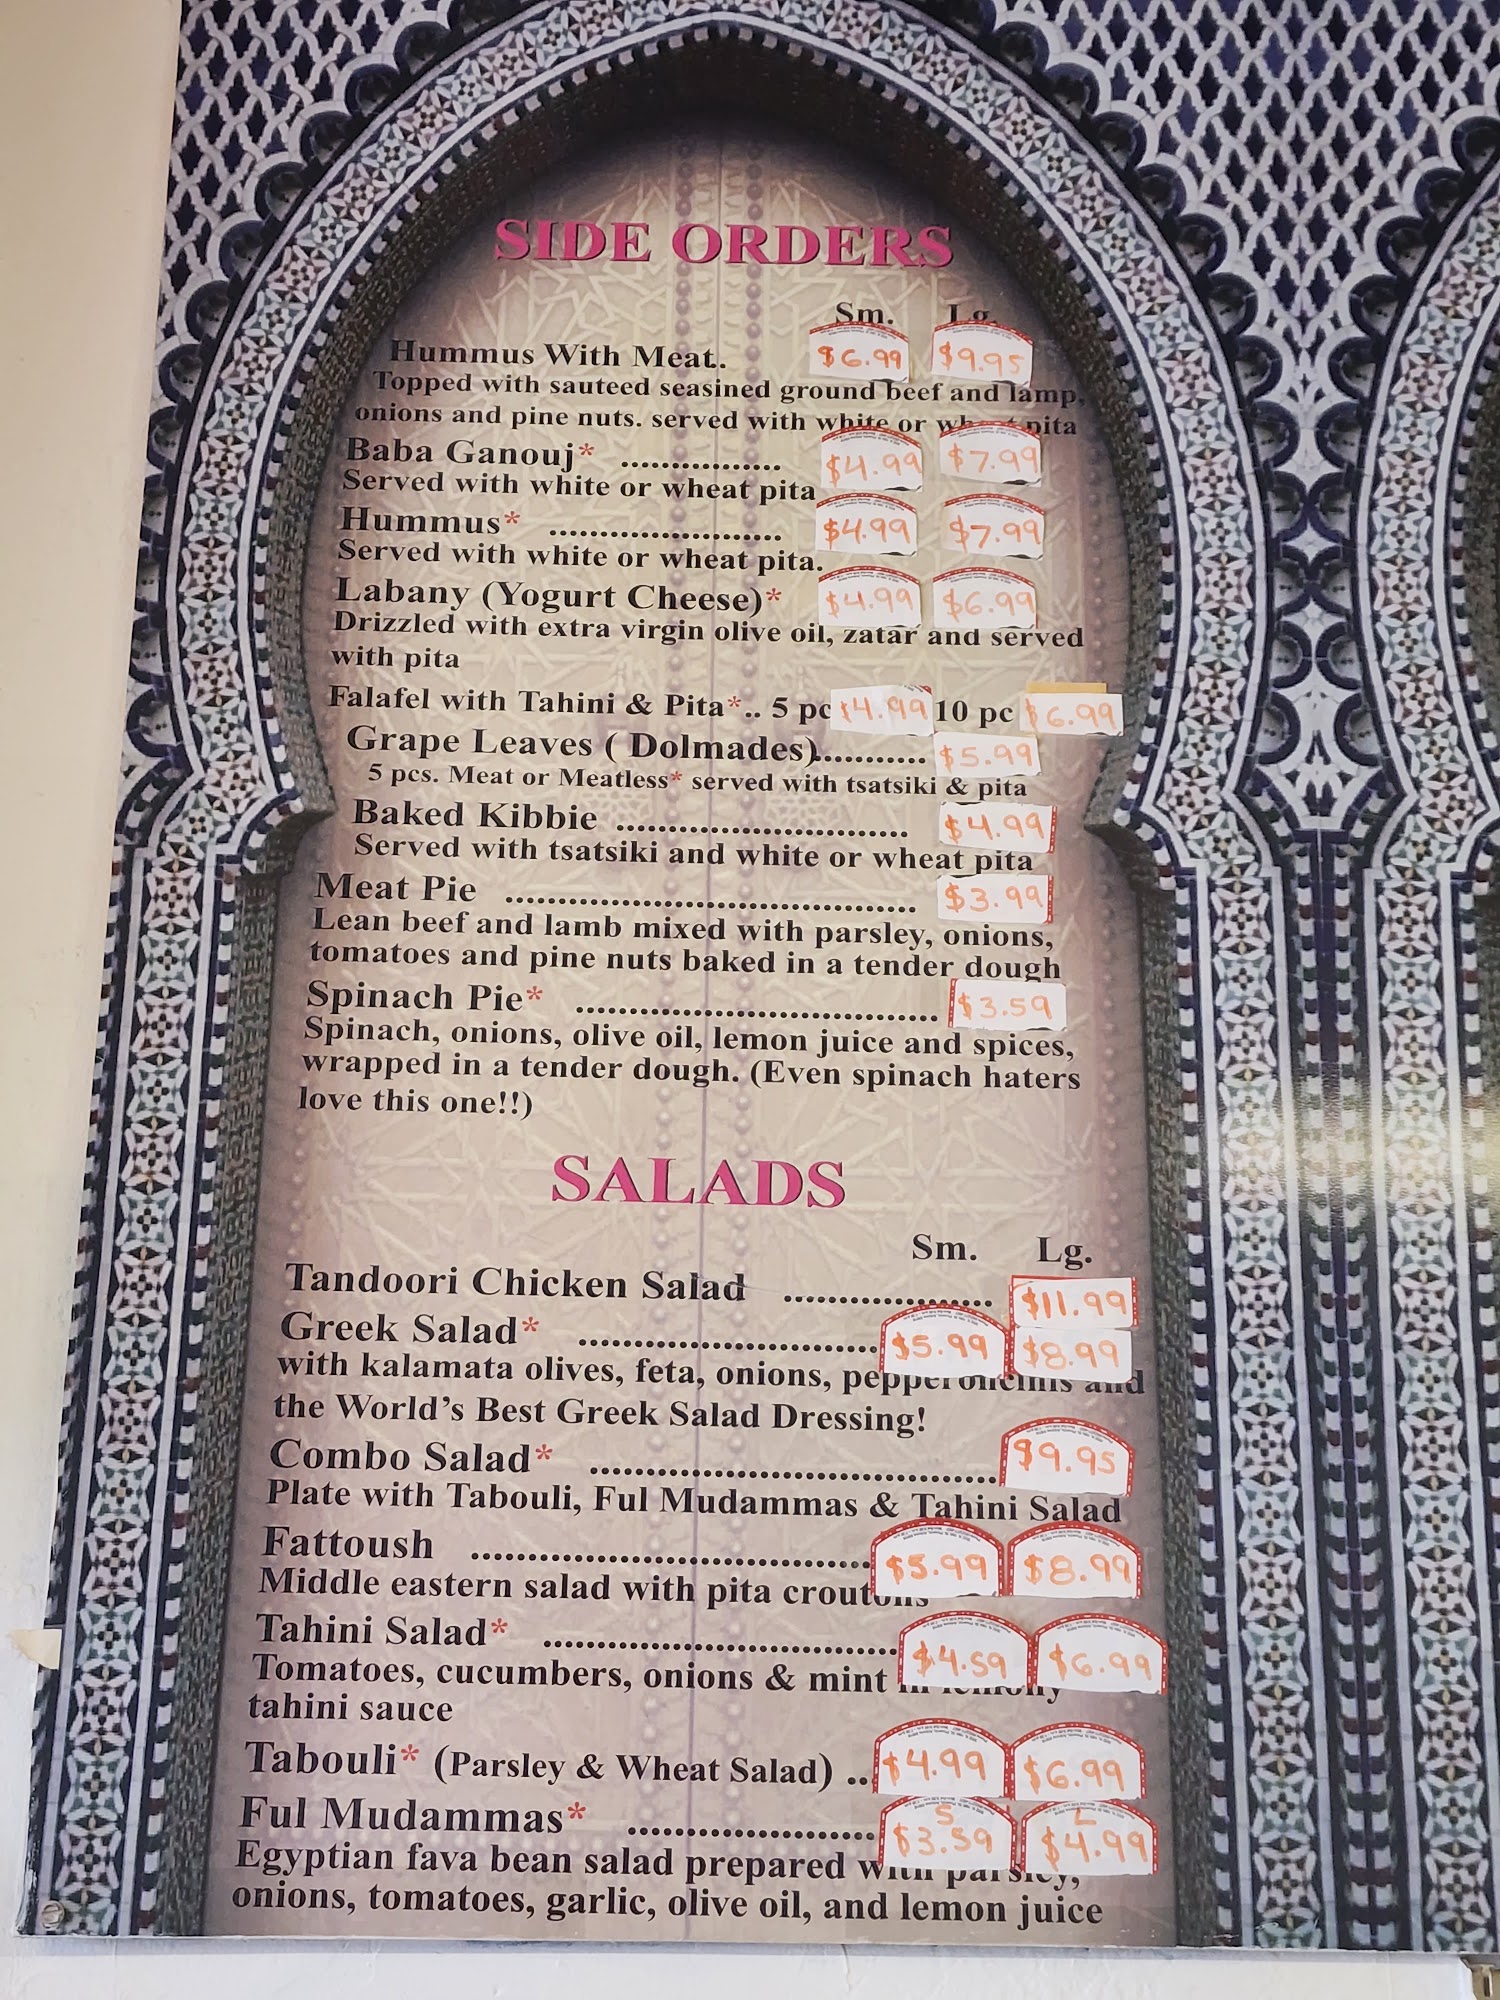 SIDE ORDERS
Sm. Lg.
Hummus With Meat. $6.99 $9.95
Topped with sauteed seasined ground beef and lamp,
onions and pine nuts. served with white or wheat pita
Baba Ganouj* ................ $4.99 $7.99
Served with white or wheat pita
Hummus* ....................... $4.99 $7.99
Served with white or wheat pita.
Labany (Yogurt Cheese)* $4.99 $6.99
Drizzled with extra virgin olive oil, zatar and served
with pita
Falafel with Tahini & Pita*.. 5 pc $4.99 10 pc $6.99
Grape Leaves ( Dolmades)........... $5.99
5 pcs. Meat or Meatless* served with tsatsiki & pita
Baked Kibbie ............................ $4.99
Served with tsatsiki and white or wheat pita
Meat Pie ........................................ $3.99
Lean beef and lamb mixed with parsley, onions,
tomatoes and pine nuts baked in a tender dough
Spinach Pie* ................................... $3.59
Spinach, onions, olive oil, lemon juice and spices,
wrapped in a tender dough. (Even spinach haters
love this one!!)
SALADS
Sm. Lg.
Tandoori Chicken Salad .................. $11.99
Greek Salad* ......................... $5.99 $8.99
with kalamata olives, feta, onions, pepperoncinis and
the World's Best Greek Salad Dressing!
Combo Salad* .................................. $9.95
Plate with Tabouli, Ful Mudammas & Tahini Salad
Fattoush .................................. $5.99 $8.99
Middle eastern salad with pita croutons
Tahini Salad* .............................. $4.59 $6.99
Tomatoes, cucumbers, onions & mint in lemony
tahini sauce
Tabouli* (Parsley & Wheat Salad) .. $4.99 $6.99
Ful Mudammas* ..................... S $3.59 L $4.99
Egyptian fava bean salad prepared with parsley,
onions, tomatoes, garlic, olive oil, and lemon juice